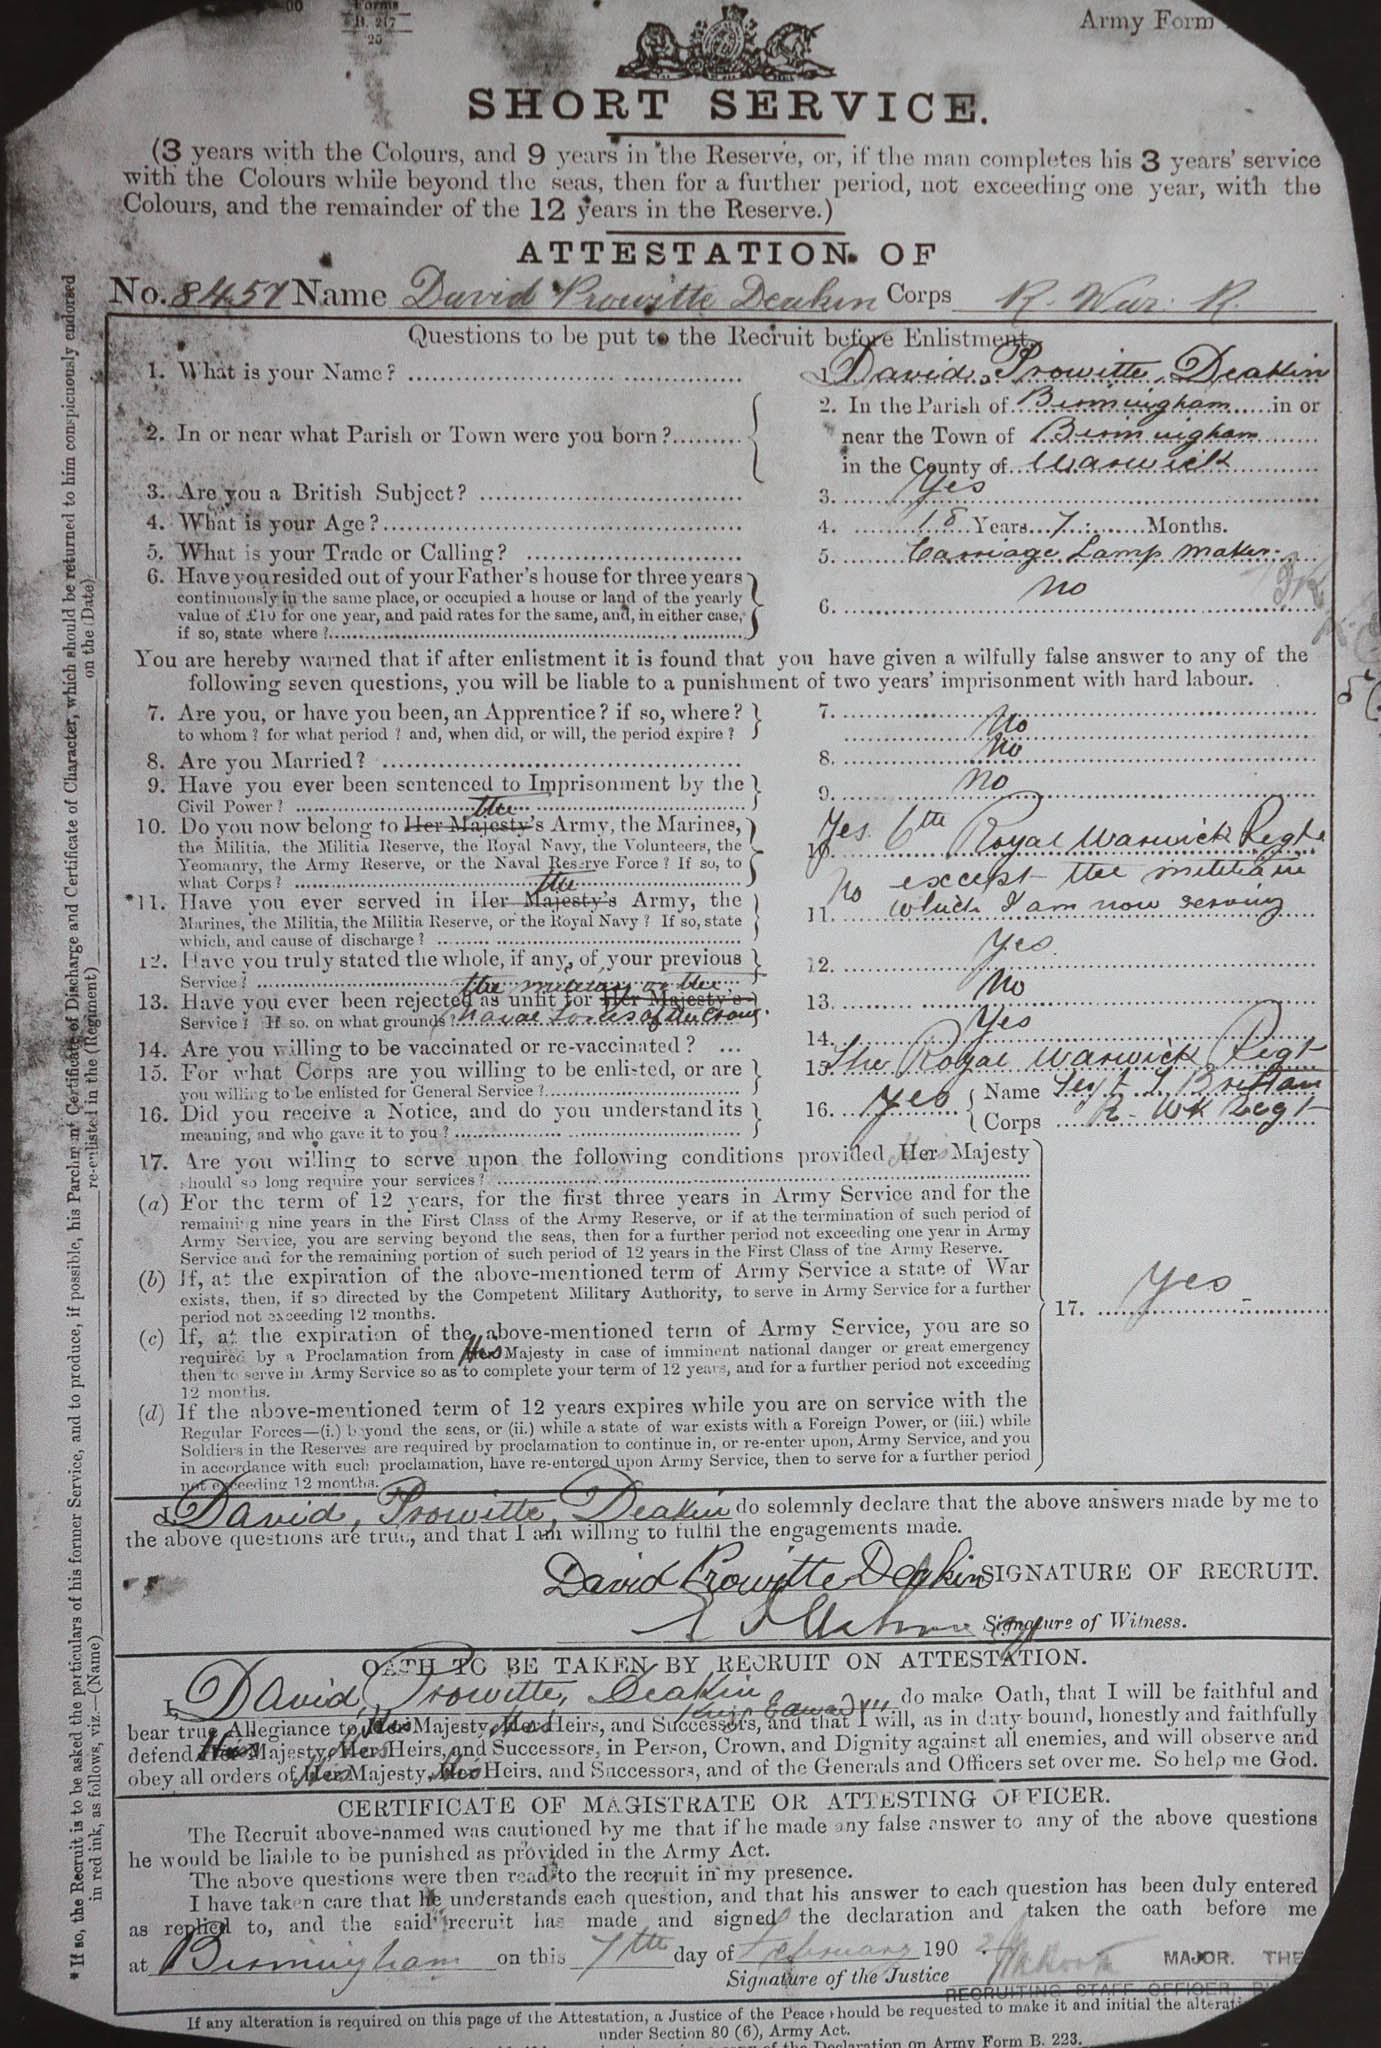 00
Forms
B. 217
25
Army Form
SHORT SERVICE.
(3 years with the Colours, and 9 years in the Reserve, or, if the man completes his 3 years' service
with the Colours while beyond the seas, then for a further period, not exceeding one year, with the
Colours, and the remainder of the 12 years in the Reserve.)
ATTESTATION OF
No. 8457 Name David Prowitte Deakin Corps R. War. R.
Questions to be put to the Recruit before Enlistment.
1. What is your Name? 1. David, Prowitte, Deakin
2. In or near what Parish or Town were you born? 2. In the Parish of Birmingham in or
near the Town of Birmingham
in the County of Warwick
3. Are you a British Subject? 3. Yes
4. What is your Age? 4. 18 Years 7 Months.
5. What is your Trade or Calling? 5. Carriage Lamp maker
6. Have you resided out of your Father's house for three years
continuously in the same place, or occupied a house or land of the yearly
value of £10 for one year, and paid rates for the same, and, in either case,
if so, state where? 6. no
You are hereby warned that if after enlistment it is found that you have given a wilfully false answer to any of the
following seven questions, you will be liable to a punishment of two years' imprisonment with hard labour.
7. Are you, or have you been, an Apprentice? if so, where?
to whom? for what period? and, when did, or will, the period expire? 7. No
8. Are you Married? 8. No
9. Have you ever been sentenced to Imprisonment by the
Civil Power? 9. no
the
10. Do you now belong to Her Majesty's Army, the Marines,
the Militia, the Militia Reserve, the Royal Navy, the Volunteers, the
Yeomanry, the Army Reserve, or the Naval Reserve Force? If so, to
what Corps? 10. Yes. 6th Royal Warwick Regt
the
*11. Have you ever served in Her Majesty's Army, the
Marines, the Militia, the Militia Reserve, or the Royal Navy? If so, state
which, and cause of discharge? 11. No except the militia in
which I am now serving
12. Have you truly stated the whole, if any, of your previous
Service? 12. Yes.
the military or the
13. Have you ever been rejected as unfit for Her Majesty's
Service? If so, on what grounds? naval forces of the Crown. 13. No
14. Are you willing to be vaccinated or re-vaccinated? ... 14. Yes
15. For what Corps are you willing to be enlisted, or are
you willing to be enlisted for General Service? 15. The Royal Warwick Regt
16. Did you receive a Notice, and do you understand its
meaning, and who gave it to you? 16. Yes Name Sergt
Corps R. Wk Regt
17. Are you willing to serve upon the following conditions provided Her Majesty
should so long require your services?
(a) For the term of 12 years, for the first three years in Army Service and for the
remaining nine years in the First Class of the Army Reserve, or if at the termination of such period of
Army Service, you are serving beyond the seas, then for a further period not exceeding one year in Army
Service and for the remaining portion of such period of 12 years in the First Class of the Army Reserve.
(b) If, at the expiration of the above-mentioned term of Army Service a state of War
exists, then, if so directed by the Competent Military Authority, to serve in Army Service for a further
period not exceeding 12 months.
17. Yes
(c) If, at the expiration of the above-mentioned term of Army Service, you are so
required by a Proclamation from His Majesty in case of imminent national danger or great emergency
then to serve in Army Service so as to complete your term of 12 years, and for a further period not exceeding
12 months.
(d) If the above-mentioned term of 12 years expires while you are on service with the
Regular Forces—(i.) beyond the seas, or (ii.) while a state of war exists with a Foreign Power, or (iii.) while
Soldiers in the Reserves are required by proclamation to continue in, or re-enter upon, Army Service, and you
in accordance with such proclamation, have re-entered upon Army Service, then to serve for a further period
not exceeding 12 months.
I, David, Prowitte, Deakin do solemnly declare that the above answers made by me to
the above questions are true, and that I am willing to fulfil the engagements made.
David Prowitte Deakin SIGNATURE OF RECRUIT.
Signature of Witness.
OATH TO BE TAKEN BY RECRUIT ON ATTESTATION.
I, David, Prowitte, Deakin do make Oath, that I will be faithful and
King Edward VII
bear true Allegiance to His Majesty, His Heirs, and Successors, and that I will, as in duty bound, honestly and faithfully
defend His Majesty, His Heirs, and Successors, in Person, Crown, and Dignity against all enemies, and will observe and
obey all orders of His Majesty, His Heirs, and Successors, and of the Generals and Officers set over me. So help me God.
CERTIFICATE OF MAGISTRATE OR ATTESTING OFFICER.
The Recruit above-named was cautioned by me that if he made any false answer to any of the above questions
he would be liable to be punished as provided in the Army Act.
The above questions were then read to the recruit in my presence.
I have taken care that he understands each question, and that his answer to each question has been duly entered
as replied to, and the said recruit has made and signed the declaration and taken the oath before me
at Birmingham on this 7th day of February 190
Signature of the Justice MAJOR. THE
RECRUITING STAFF OFFICER,
If any alteration is required on this page of the Attestation, a Justice of the Peace should be requested to make it and initial the
under Section 80 (6), Army Act.
of the Declaration on Army Form B. 223.
* If so, the Recruit is to be asked the particulars of his former Service, and to produce, if possible, his Parchment Certificate of Discharge and Certificate of Character, which should be returned to him conspicuously endorsed
in red ink, as follows, viz.—(Name) re-enlisted in the (Regiment) on the (Date)